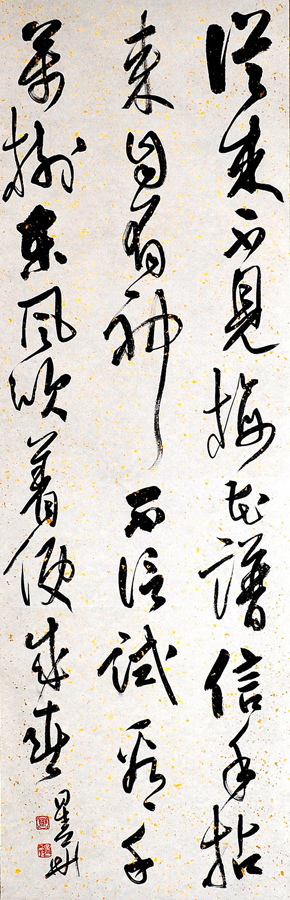 從来不見梅花譜信手拈
来自有神不信試看千
萬樹東風吹着便成春